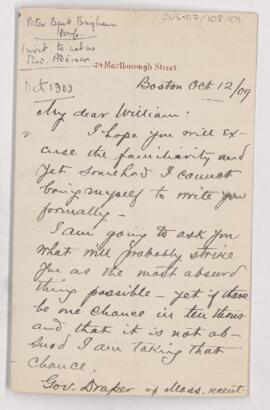 Peter Bent Brigham
Hosp.
CUS-417/108.101
Invit to act as
Med. Adviser
Oct 1909
79 Marlborough Street.
Boston Oct 12/09
My dear William:
I hope you will ex-
cuse the familiarity and
yet somehow I cannot
bring myself to write you
formally -
I am going to ask you
what will probably strike
you as the most absurd
thing possible - yet if there
be one chance in ten thous-
and that it is not ab-
surd I am taking that
chance.
Gov. Draper of Mass. recent-